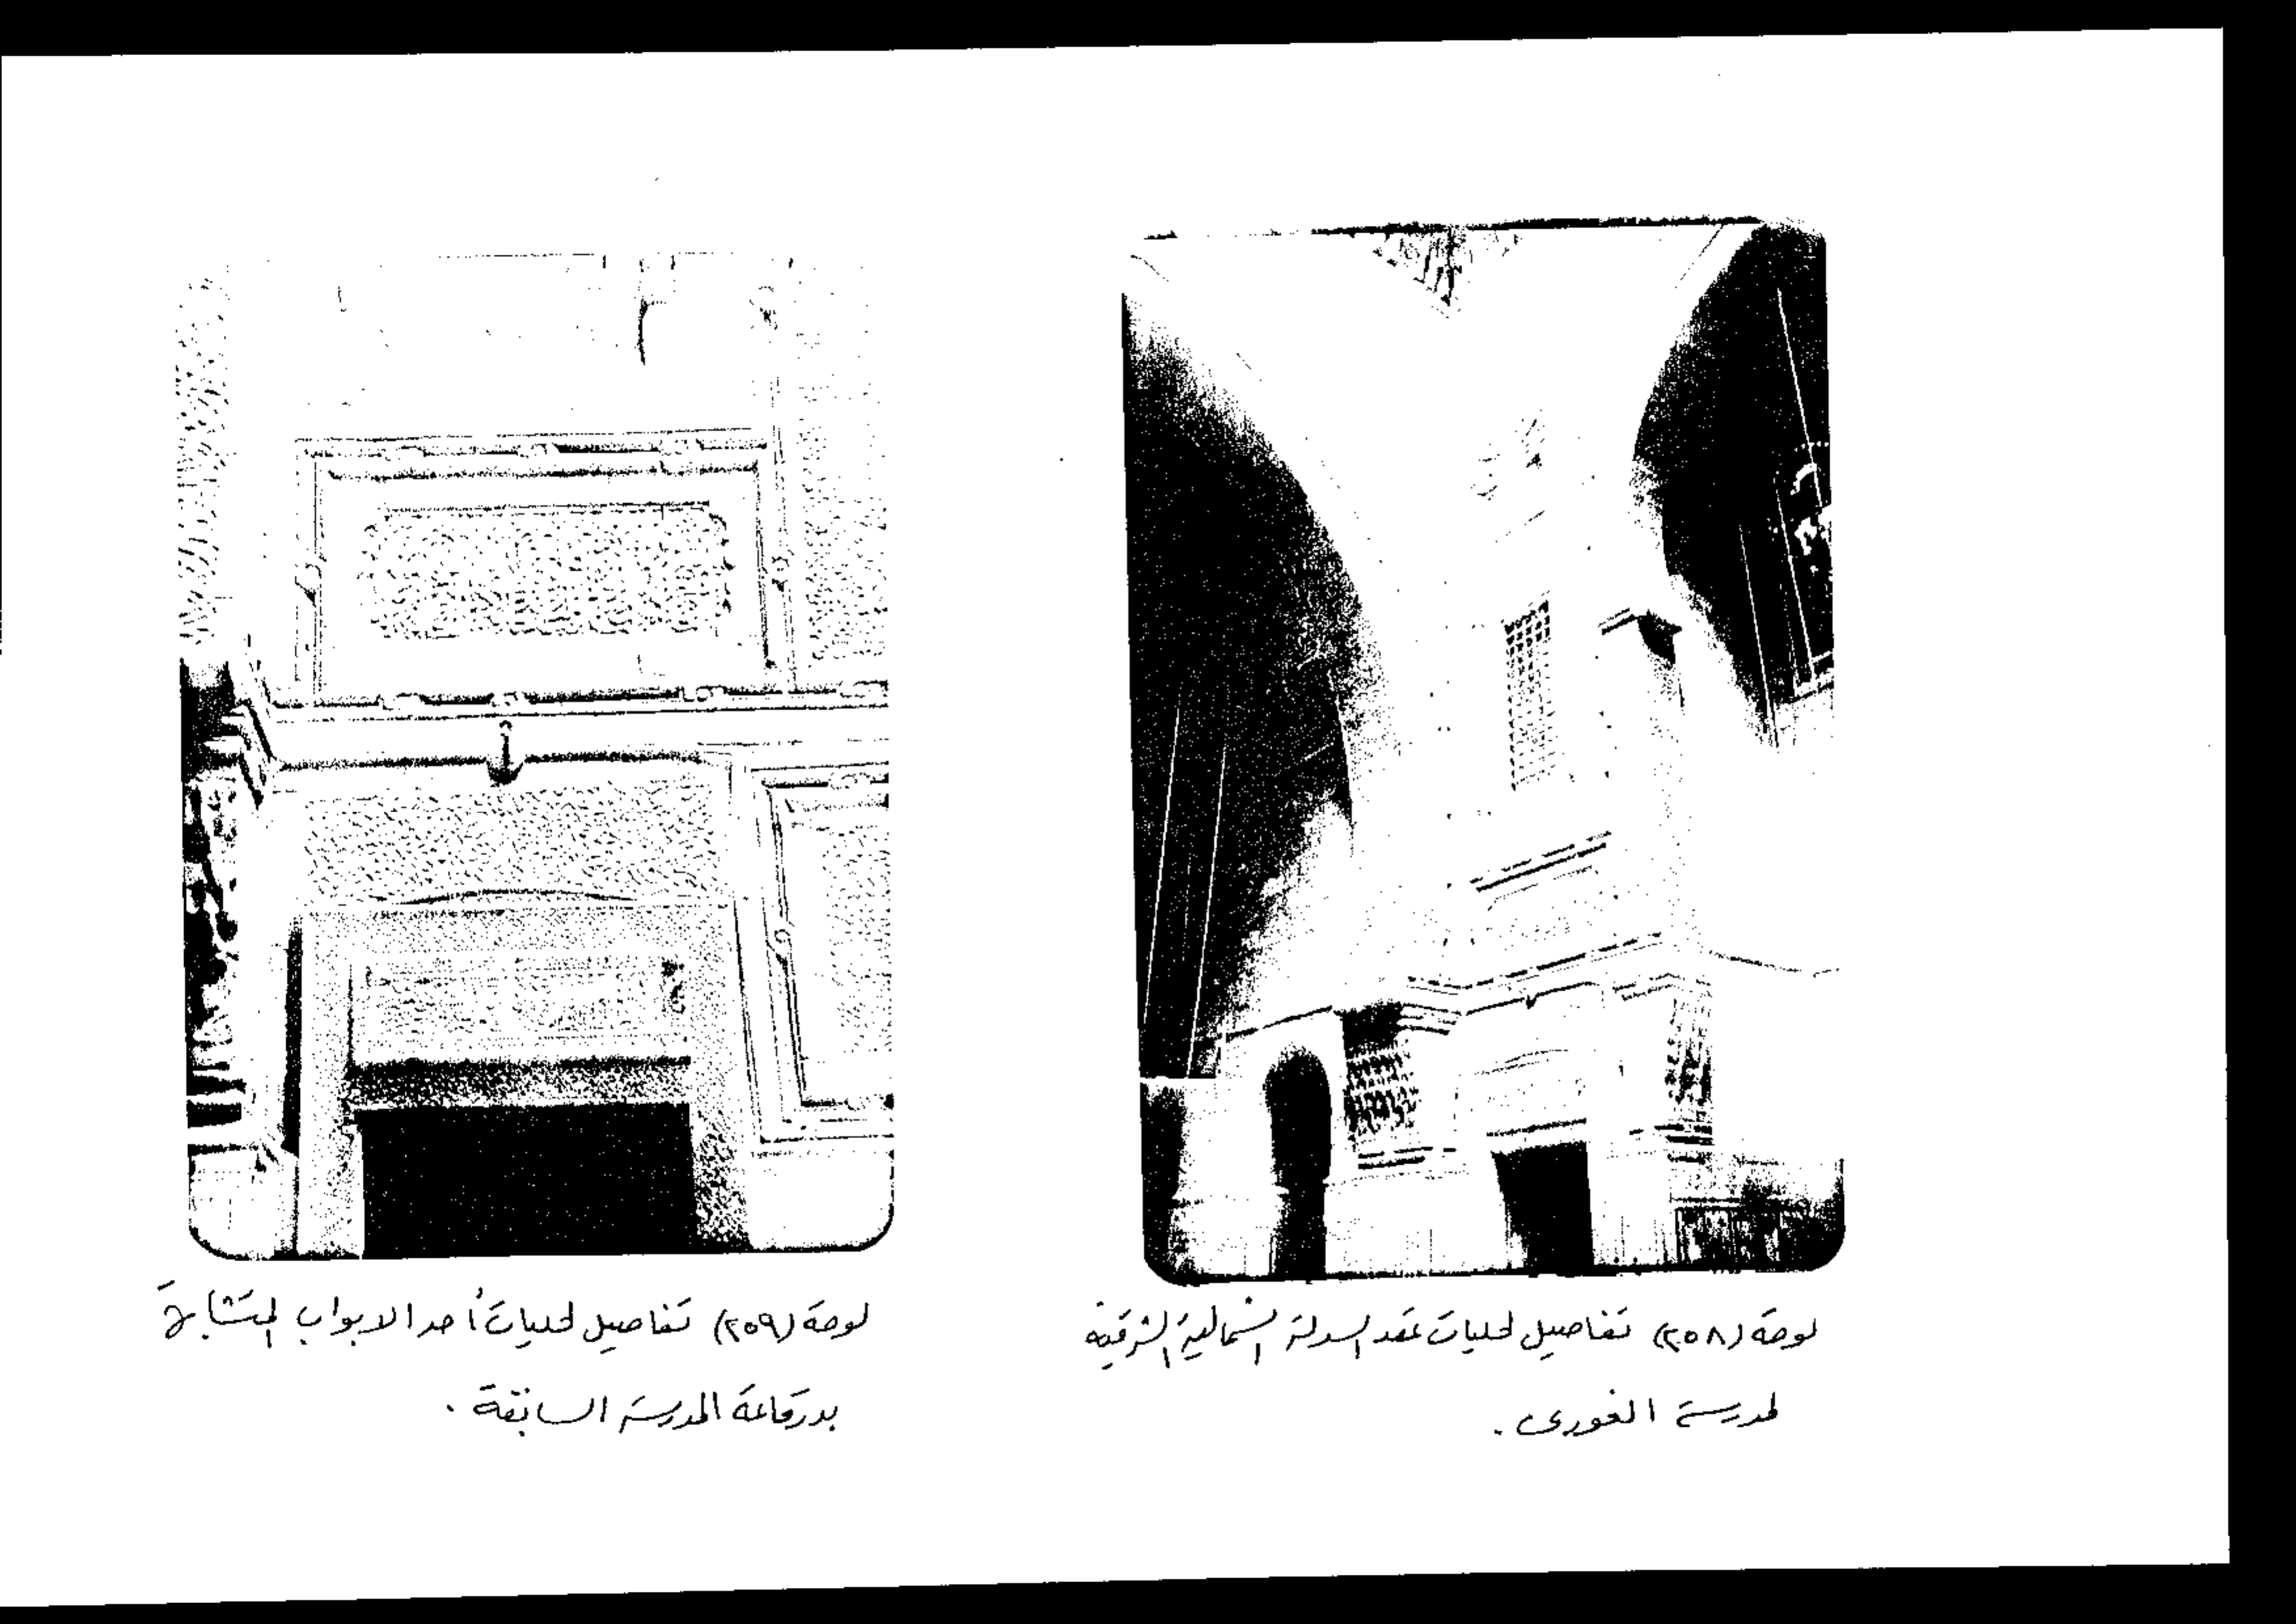 لوحة (٢٥٨) تفاصيل لحليات عقد السدلة الشمالية الشرقية
لمدرسة الغورى .
لوحة (٢٥٩) تفاصيل لحليات أحد الابواب المتشابهة
بدرقاعة المدرسة السابقة .